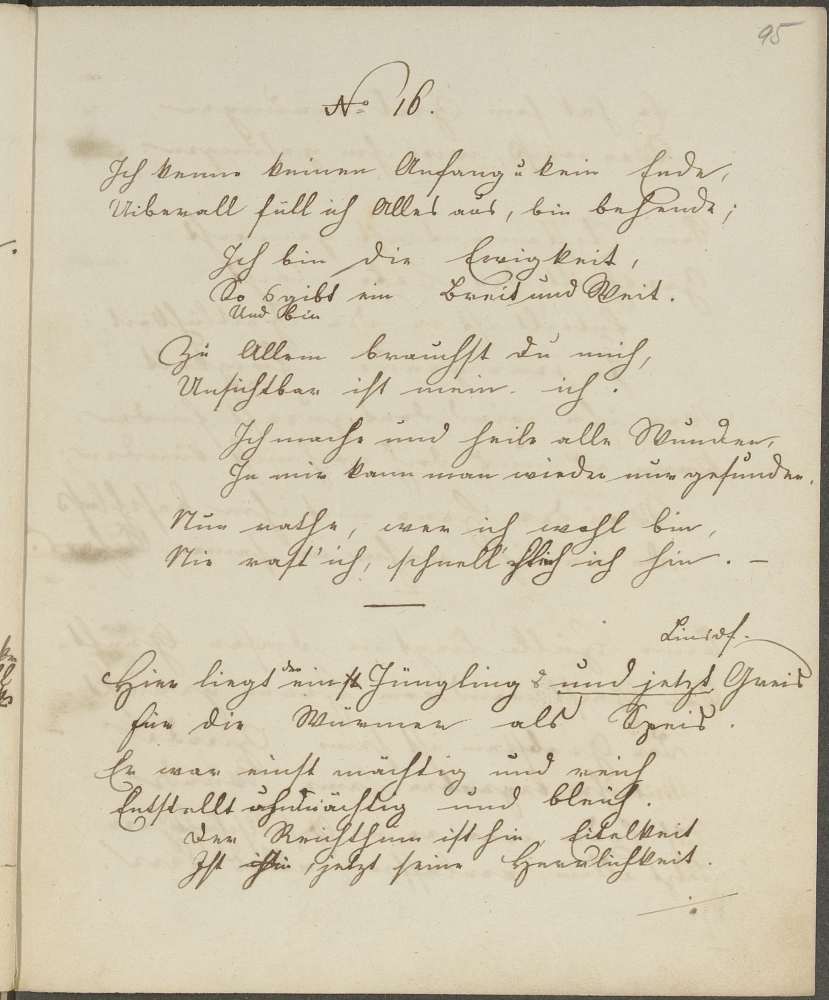 95
No 16.
Ich kenne keinen Anfang u kein Ende,
Uiberall füll ich Alles aus, bin behende;
Ich bin die Ewigkeit,
So gibt ein Breit und Weit.
Und bin
Zu Allem brauchst du mich,
Unsichtbar ist mein ich.
Ich mache und heile alle Wunden,
In mir kann man wieder nur gesunden.
Nur rathe, wer ich wohl bin,
Nie rast' ich, schnell schlich ich hin. –
Hier liegt der einst Jüngling und jetzt Greis
für die Würmer als Speis.
Er war einst mächtig und reich
Entstellt ohnmächtig und bleich.
Der Reichthum ist hin, Eitelkeit
Ist jetzt seine Herrlichkeit.